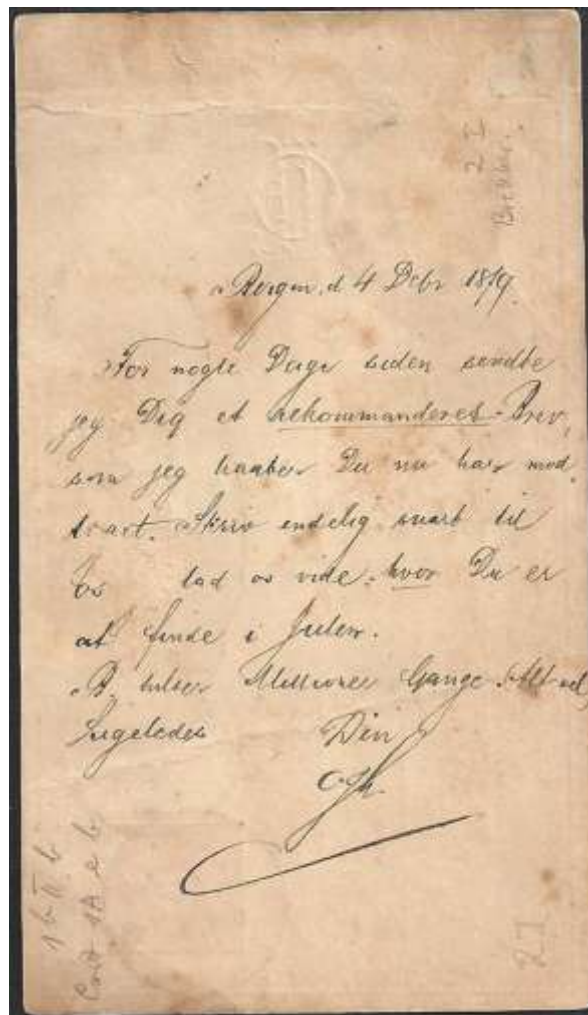 Bergen, d 4 Debr 1879.
For nogle Dage siden sendte
jeg Dig et rekommanderet Brev,
som jeg haaber Du nu har mod
Skriv endelig snart til
os lad os vide, hvor Du er
at finde i Julen.
B. hilser Millioner Gange
Ligeledes Din
2 I
2 I